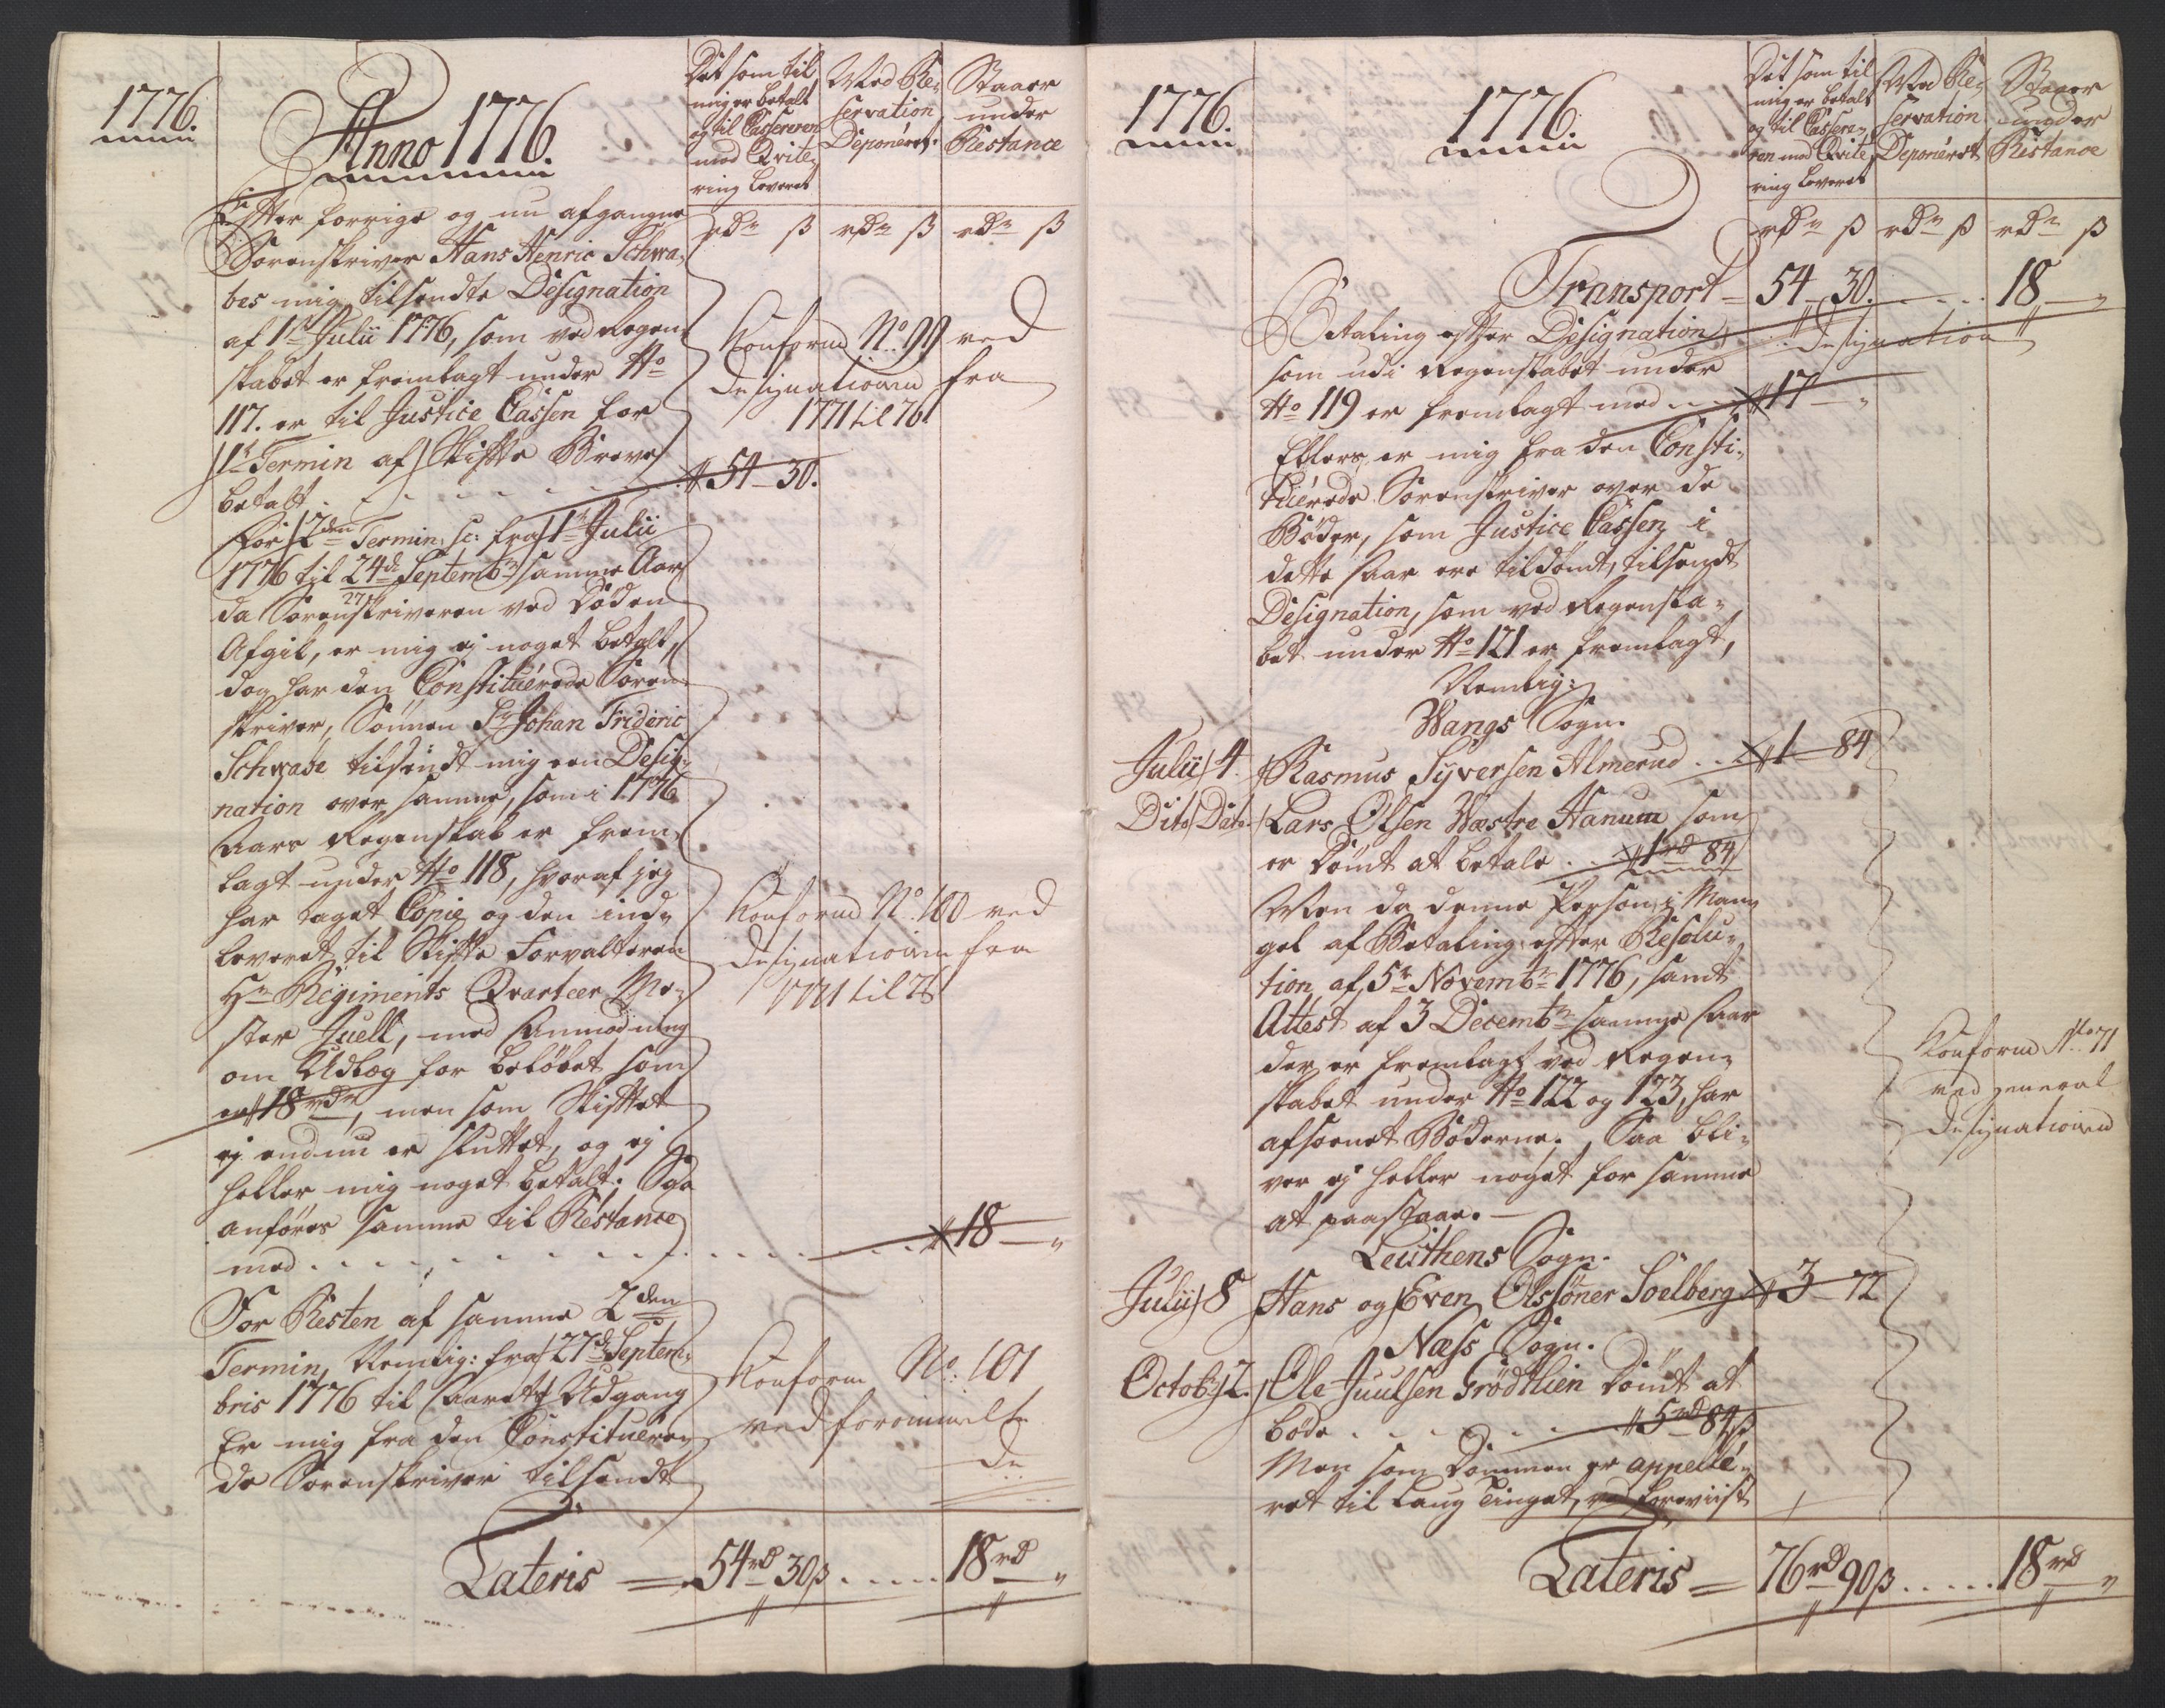 1776.
Anno 1776.
Det som til
mig er betalt
og til Cassereren
med Qvite,
ring leveret
Med Re,
servation
Deponéret.
Staaer
under
Restance
rdr ß rdr ß rdr ß
Efter forrige og nu afgangne
Sorenskriver Hans Henric Schwa,
bes mig tilsendte Designation
af 1te Julii 1776, som ved Regen,
skabet er fremlagt under No
117. er til Justice Cassen for
1te Termin af Skifte Breve
betalt . . . . . . 54 — 30.
Conform No. 99 ved
designationen fra
1771 til 76
For 2den Termin, sc: fra 1te Julii
1776 til 24de Septembr samme Aar
27
da Sorenskriveren ved Döden
Afgik, er mig ej noget betalt,
dog har den Constituérede Soren,
skriver, Sönnen Sr Johan Frideric
Schwabe tilsendt mig een Desig,
nation over samme, som i 1776
Aars Regenskab er frem,
lagt under No 118, hvoraf jeg
har taget Copie og den ind,
leveret til Skifte Forvalteren
Hr Regiments Qvarteer Me,
ster Juell, med Anmodning
om Udlæg for belöbet som
er 18 rdr, men som Skiftet
ej endnu er sluttet, og ej
heller mig noget betalt; Saa
anföres samme til Restance
med . . . . . . . . . . 18 — "
Conform No. 100 ved
designationen fra
1771 til 76
For Resten af samme 2den
Termin, Nemlig: fra 27de Septem,
bris 1776 til Aarets Udgang
Er mig fra den Constituére,
de Sorenskriver tilsendt
Conform No: 101
ved formeldte
De
Lateris = 54 rd 30 ß . . . . . 18 rd "
1776.
1776.
Det som til
mig er betalt
og til Cassere,
ren med Qvite,
ring leveret
Med Re,
servation
Deponéret
Staaer
under
Restance
rdr ß rdr ß rdr ß
Transport — 54 — 30. . . . . 18 — "
Betaling efter Designation
designation
som udi Regenskabet under
No 119 er fremlagt med . . 17 — "
Ellers er mig fra den Consti,
tuérede Sorenskriver over de
Böder, som Justice Cassen i
dette Aar ere tildömt, tilsendt
Designation, som ved Regenska,
bet under No 121 er fremlagt,
Nemlig:
Wangs Sogn.
Julii 4. Rasmus Syversen Almerud . . 1 — 84
Dito Dato. Lars Olsen Wæstre Hanum som
er Dömt at betale . . 1 rd 84
Men da denne Person i Man,
gel af Betaling efter Resolu,
tion af 5te Novembr 1776, samt
Attest af 3 Decembr samme Aar
der er fremlagt ved Regen,
skabet under No 122 og 123, har
afsonet Böderne. Saa bli,
ver ej heller noget for samme
at paastaae. —
Conform No. 71
ved general
designationen
Leuthens Sogn.
Julii 8 Hans og Even Olssöner Soelberg 3 — 72
Næss Sogn.
Octob: 2. Ole Juulsen Grödtlien Dömt at
böde . . . . . . 5 rd 84 ß
Men som Dommen er appellé,
ret til Laug Tinget, ved foreviist
Lateris = 76 rd 90 ß . . . . . 18 rd "